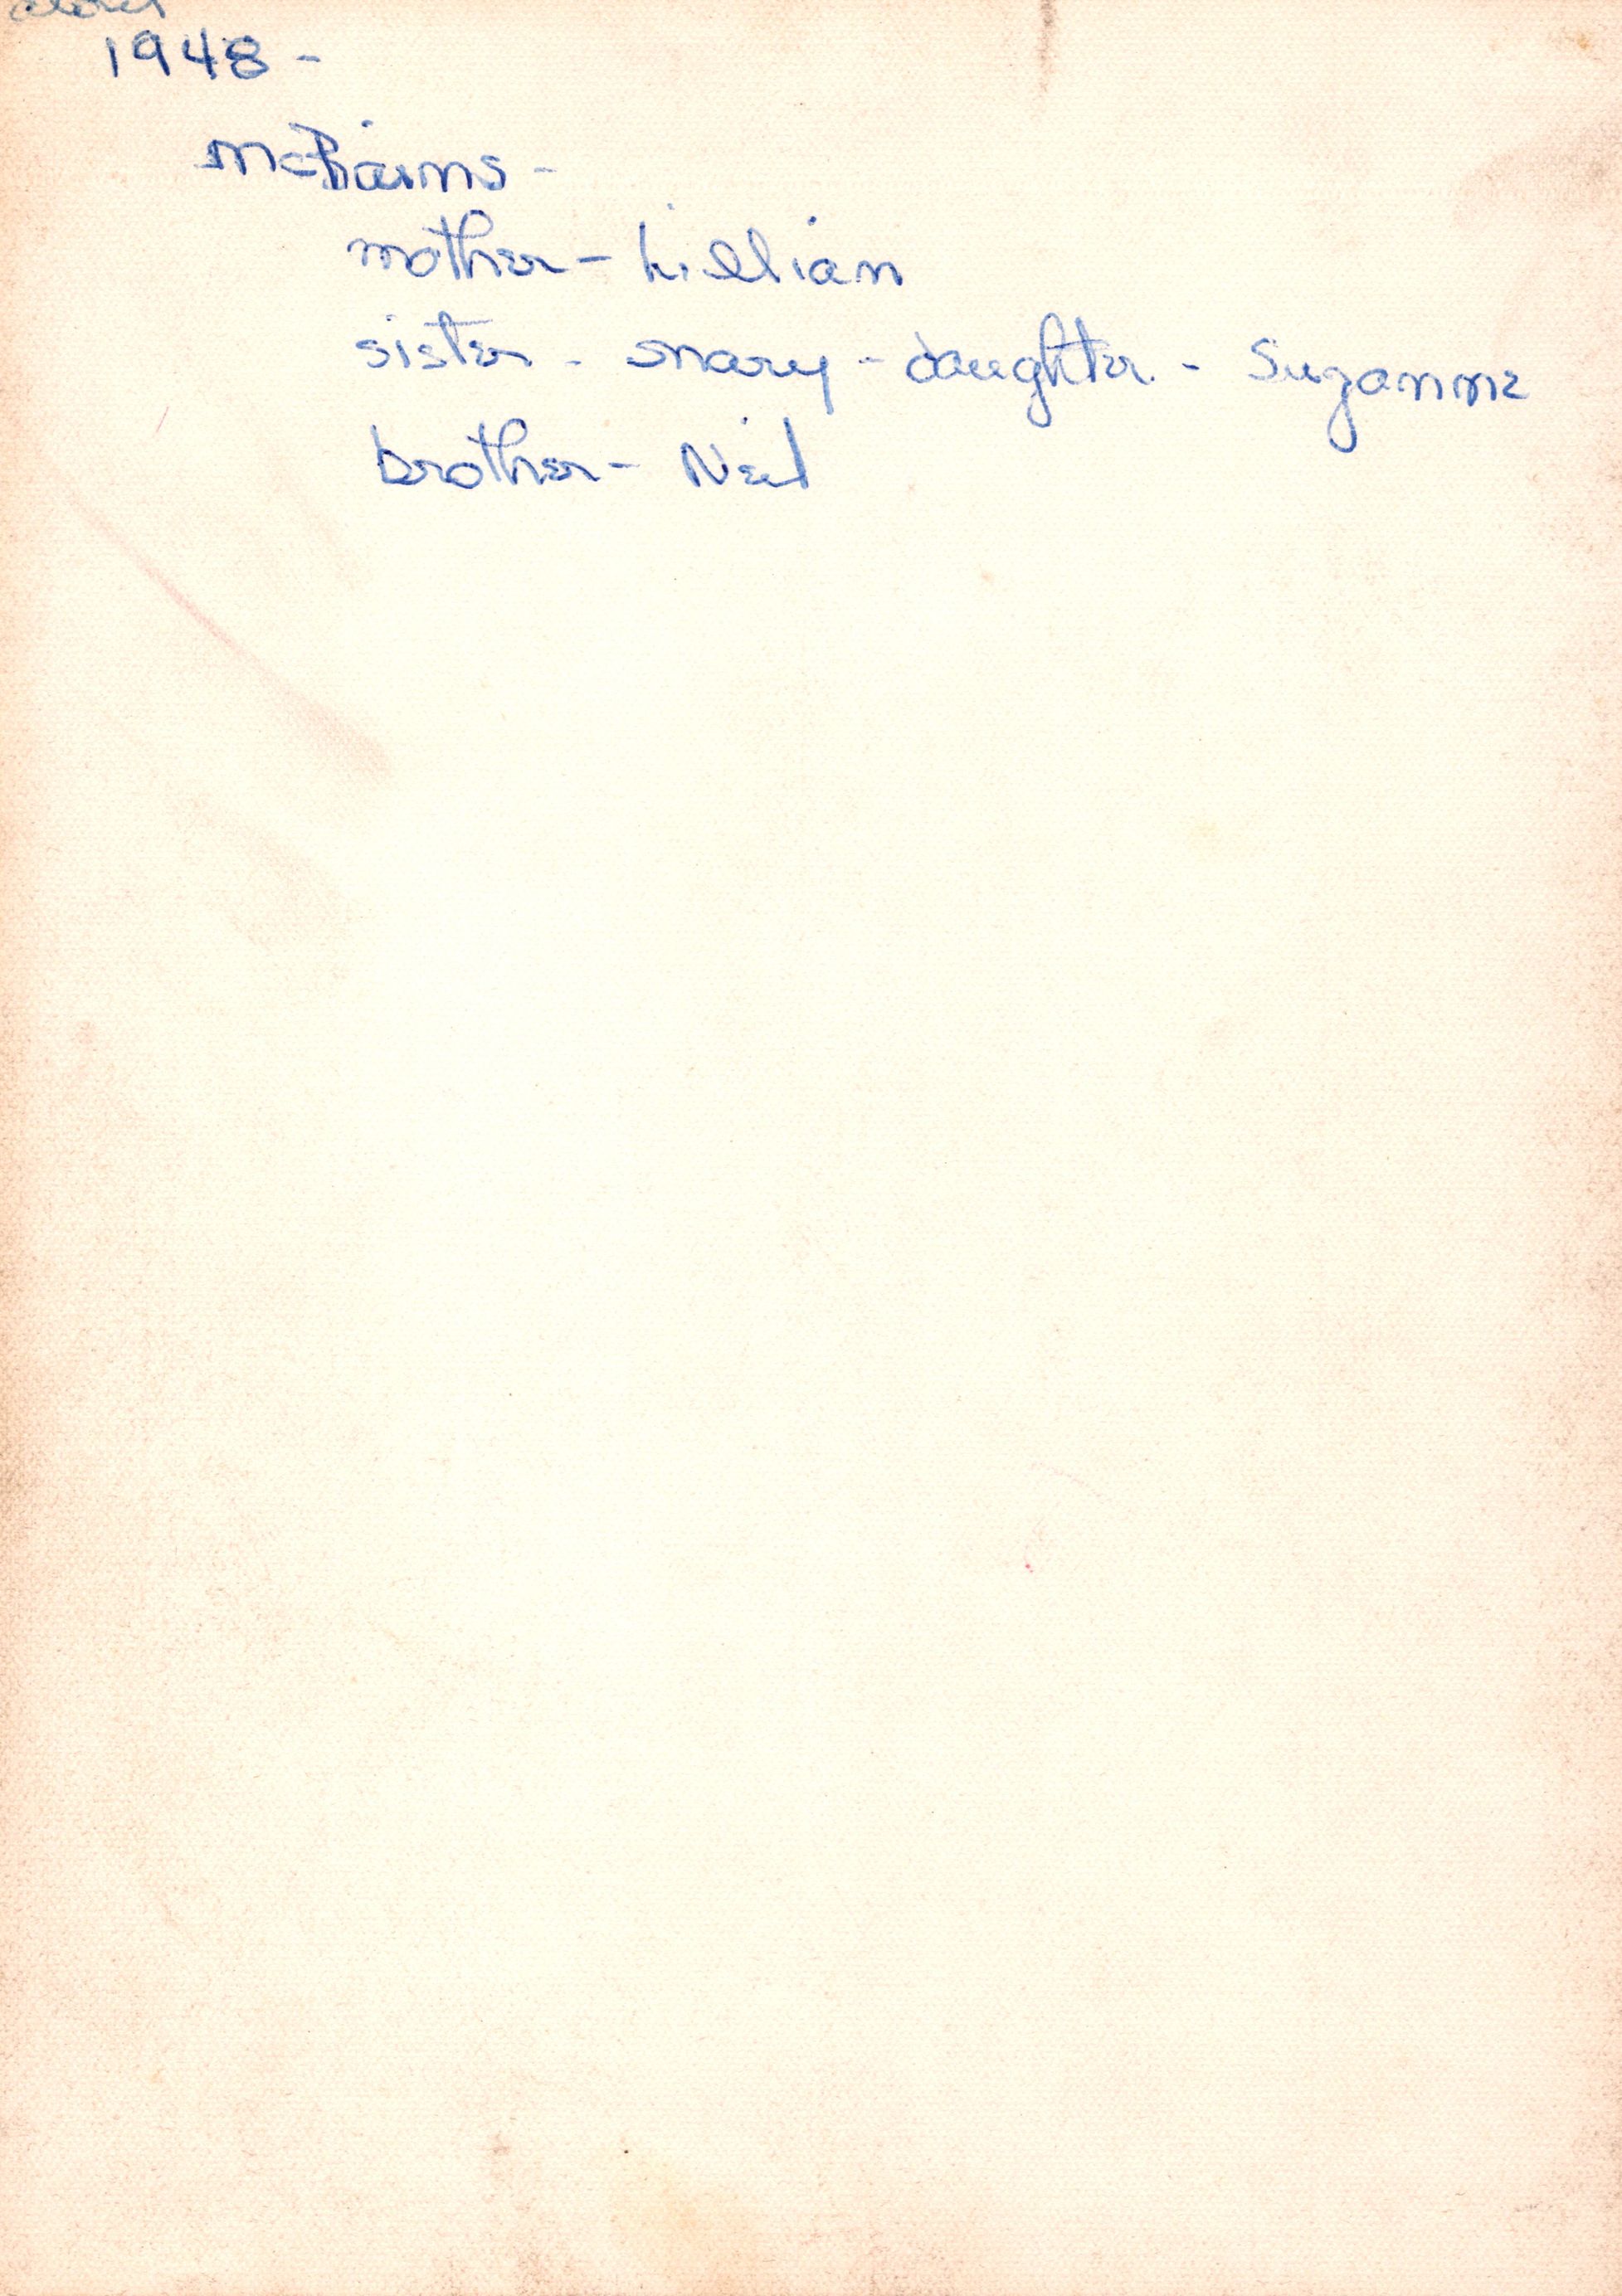 1948 -
mother - Lillian
sister - Mary - daughter - Suzanne
brother - Neil